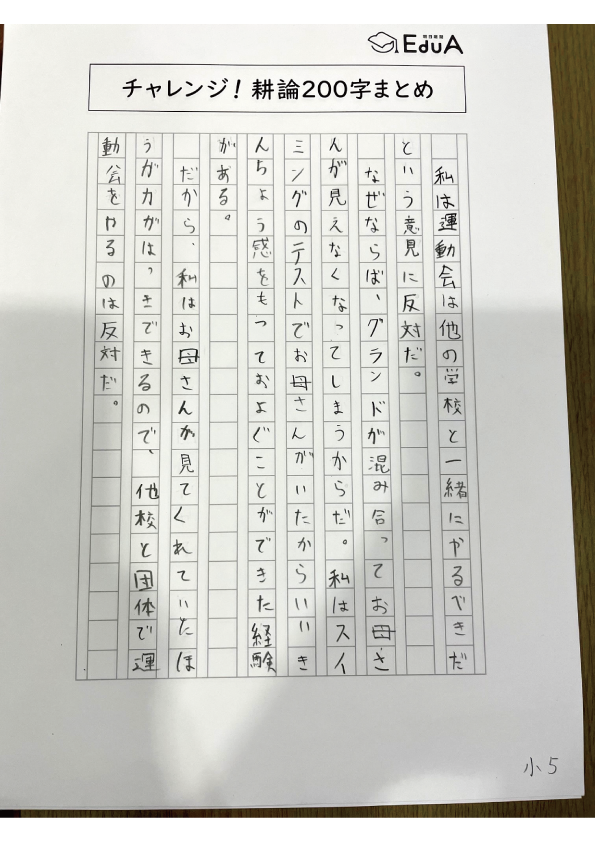 朝日新聞
EduA
チャレンジ！耕論200字まとめ
私は運動会は他の学校と一緒にやるべきだ
という意見に反対だ。
なぜならば、グランドが混み合ってお母さ
んが見えなくなってしまうからだ。私はスイ
ミングのテストでお母さんがいたからいいき
んちょう感をもっておよぐことができた経験
がある。
だから、私はお母さんが見てくれていたほ
うが力がはっきできるので、他校と団体で運
動会をやるのは反対だ。
小5